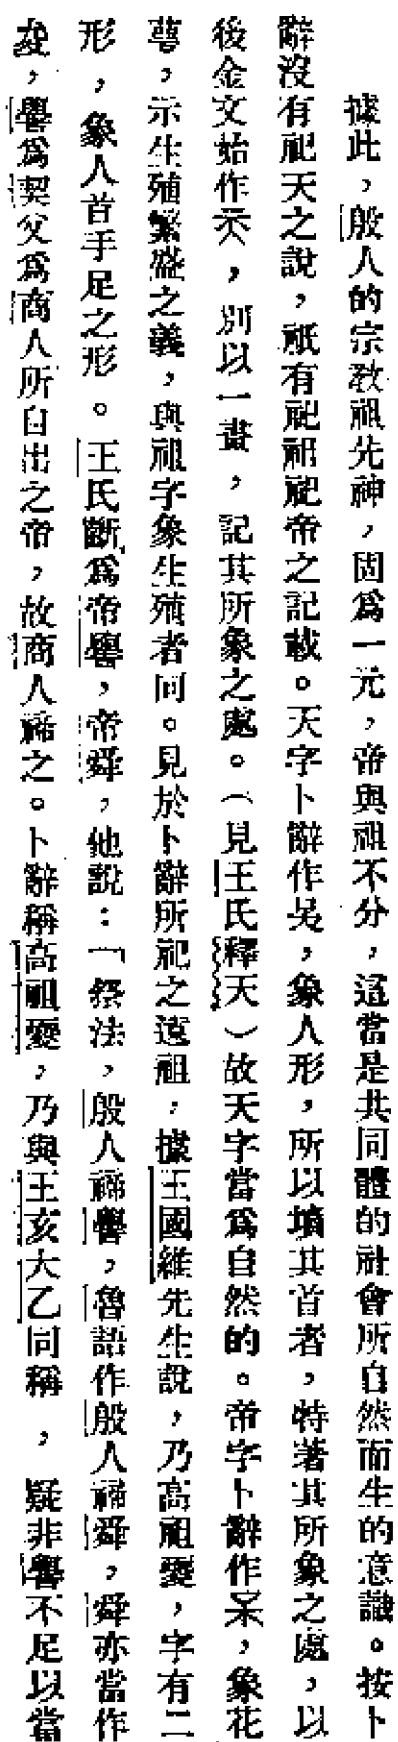 據此，殷人的宗敎祖先神，固爲一元，帝與祖不分，這當是共同體的社會所自然而生的意識。按卜
辭沒有祀天之說，祇有祀祖祀帝之記載。天字卜辭作吴，象人形，所以墳其首者，特著其所象之處，以
後金文始作天，別以一畫，記其所象之處。（見王氏釋天）故天字當爲自然的。帝字卜辭作，象花
萼，示生殖繁盛之義，與祖字象生殖者同。見於卜辭所祀之遠祖，據王國維先生說，乃高祖夒，字有二
形，象人首手足之形。王氏斷爲帝嚳，帝舜，他說：「祭法，殷人禘嚳，魯語作殷人禘舜，舜亦當作
夋，嚳爲契父爲商人所自出之帝，故商人禘之。卜辭稱高祖夒，乃與王亥大乙同稱，疑非嚳不足以當